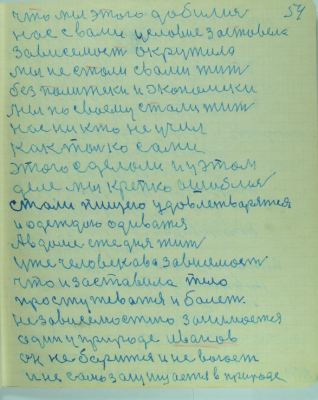 54
что мы этого добился
нас с вами условие заставела
зависемост окрутила
мы не стали с вами жит
без политеки и экономеки
мы по своему стали жит
нас ни кто не учил
как только сами
этого сделоли и у этом
деле мы крепко ошиблися
стали пищею удовлетварятся
и одеждою одиватся
А в доме сже дня жит
уже человека ва зависемост
что и заставила тело
простужеватся и болет.
Независемостю занемается
один у природе Иванов
он не барится и не воюет
и не само защищается в природе